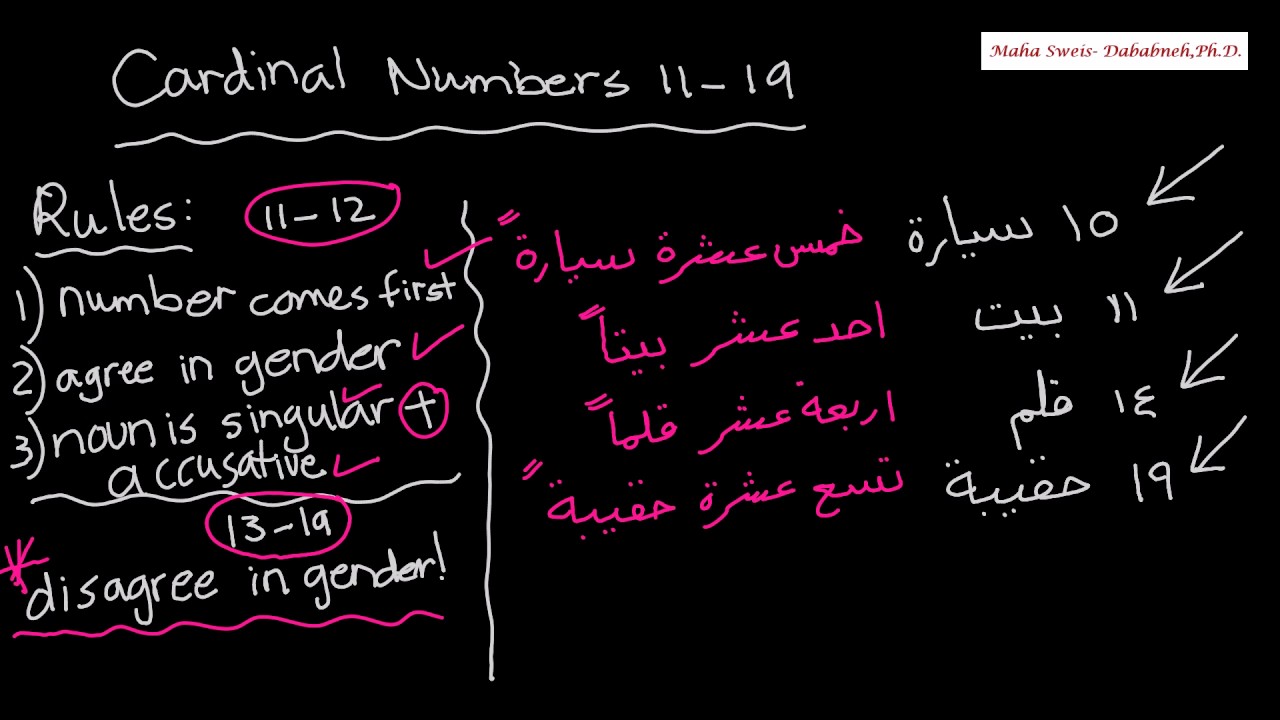 Maha Sweis- Dababneh,Ph.D.
Cardinal Numbers 11-19
Rules: 11-12
1) number comes first
2) agree in gender
3) noun is singular +
accusative
13-19
* disagree in gender!
١٥ سيارة خمس عشرة سيارةً
١١ بيت احد عشر بيتاً
١٤ قلم اربعة عشر قلماً
١٩ حقيبة تسع عشرة حقيبةً